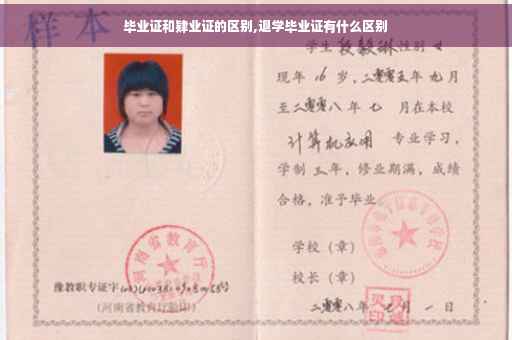 毕业证和肄业证的区别,退学毕业证有什么区别
样本
学生 段毅琳 性别 女
现年 16 岁，二零零五年 九 月
至二零零八年 七 月在本校
计算机应用 专业学习，
学制 三 年，修业期满，成绩
合格，准予毕业。
学校（章）
校长（章）
河南省教育厅
豫教职专证字
(河南省教育厅验印)
二零零八年 七 月 一 日